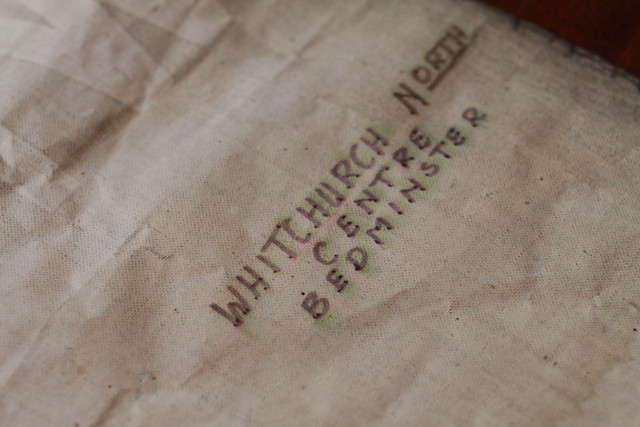 WHITCHURCH NORTH
CENTRE
BEDMINSTER